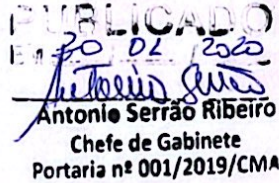 PUBLICADO
Em 30 02 2020
Antonio Serrão
Antonio Serrão Ribeiro
Chefe de Gabinete
Portaria nº 001/2019/CMA